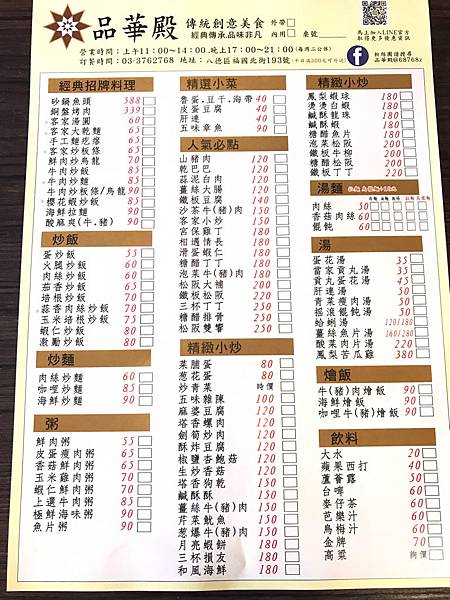 品華殿
傳統創意美食
經典傳承品味非凡
外帶
內用
桌號
馬上加入LINE官方
取得更多優惠資訊
營業時間:上午11:00~14:00.晚上17:00~21:00(每週二公休)
訂餐時間:03-3762768 地址:八德區福國北街193號(平日滿300元可外送)
粉絲團請搜尋
品華殿@68768z
經典招牌料理
砂鍋魚頭 588
銅盤烤肉 339
客家湯圓 60
客家大乾麵 65
手工麵疙瘩 65
客家炒粄條 65
鮮肉炒烏龍 70
牛肉炒飯 85
牛肉炒麵 85
牛肉炒粄條/烏龍 90
櫻花蝦炒飯 85
海鮮拉麵 90
酸麻爽(牛.豬) 90
炒飯
蛋炒飯 55
火腿炒飯 60
肉絲炒飯 60
茄香炒飯 65
培根炒飯 70
蒜香肉絲炒飯 70
玉米培根炒飯 75
蝦仁炒飯 80
激勵炒飯 80
炒麵
肉絲炒麵 60
咖哩炒麵 85
海鮮炒麵 90
粥
鮮肉粥 55
皮蛋瘦肉粥 65
香菇鮮肉粥 65
玉米雞肉粥 65
蝦仁鮮肉粥 70
上選牛肉粥 85
極鮮海味粥 90
魚片粥 90
精選小菜
魯蛋.豆干.海帶 40
皮蛋豆腐 40
肝連 40
五味章魚 90
人氣必點
山豬肉 120
乾巴巴 120
蒜泥白肉 120
薑絲大腸 120
鐵板豆腐 140
沙茶牛(豬)肉 150
客家小炒 150
宮保雞丁 180
相遇情長 180
滑蛋蝦仁 180
鐵板丁丁 180
泡菜牛(豬)肉 180
松阪大補 200
鐵板松阪 220
三杯丁丁 250
糖醋排骨 250
松阪雙響 250
精緻小炒
菜脯蛋 80
蔥花蛋 80
炒青菜 時價
五味雜陳 100
麻婆豆腐 120
塔香螺肉 120
劍筍炒肉 120
酥炸豆腐 120
椒鹽杏鮑菇 120
生炒香菇 120
塔香狗乾 150
鹹酥酥 150
薑絲牛(豬)肉 150
芹菜魷魚 150
蔥爆牛(豬)肉 150
月亮蝦餅 180
三杯損友 180
和風海鮮 180
精緻小炒
鳳梨蝦球 180
燙燙白蝦 180
鹹酥龍珠 180
鹹酥蝦 180
糖醋魚片 180
泡菜松阪 200
鐵板牛柳 200
糖醋松阪 220
鐵板丁丁 220
湯麵
肉絲 50
香菇肉絲 60
餛飩 60
湯
蛋花湯 35
當家貢丸湯 35
貢丸蛋花湯 45
肝連湯 50
青菜瘦肉湯 50
搖滾餛飩湯 50
蛤蜊湯 120/180
薑絲魚片湯 160/280
酸菜肉片湯 220
鳳梨苦瓜雞 380
燴飯
牛(豬)肉燴飯 90
海鮮燴飯 90
咖哩牛(豬)燴飯 90
飲料
大水 20
蘋果西打 40
蘆薈露 50
台啤 60
麥仔茶 60
芭樂汁 60
烏梅汁 60
金牌 70
高粱 詢價